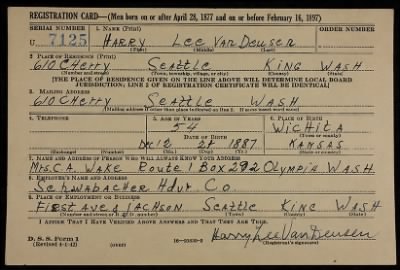 REGISTRATION CARD—(Men born on or after April 28, 1877 and on or before February 16, 1897)
SERIAL NUMBER 1. NAME (Print) ORDER NUMBER
U 7125 HARRY LEE VAN DEUSEN
(First) (Middle) (Last)
2. PLACE OF RESIDENCE (Print)
610 CHERRY SEATTLE KING WASH
(Number and street) (Town, township, village, or city) (County) (State)
[THE PLACE OF RESIDENCE GIVEN ON THE LINE ABOVE WILL DETERMINE LOCAL BOARD
JURISDICTION; LINE 2 OF REGISTRATION CERTIFICATE WILL BE IDENTICAL]
3. MAILING ADDRESS
610 CHERRY SEATTLE WASH
[Mailing address if other than place indicated on line 2. If same insert word same]
4. TELEPHONE 5. AGE IN YEARS 6. PLACE OF BIRTH
54 WICHITA
DATE OF BIRTH (Town or county)
1887 KANSAS
(Exchange) (Number) (Mo.) (Day) (Yr.) (State or country)
7. NAME AND ADDRESS OF PERSON WHO WILL ALWAYS KNOW YOUR ADDRESS
MRS. C. A. WAKE ROUTE 1 BOX 292 OLYMPIA WASH
8. EMPLOYER'S NAME AND ADDRESS
SCHWABACHER HDW CO.
9. PLACE OF EMPLOYMENT OR BUSINESS
FIRST AVE & JACKSON SEATTLE KING WASH
(Number and street or R. F. D. number) (Town) (County) (State)
I AFFIRM THAT I HAVE VERIFIED ABOVE ANSWERS AND THAT THEY ARE TRUE.
D. S. S. Form 1 Harry Lee Van Deusen
(Revised 4-1-42) (over) (Registrant's signature)